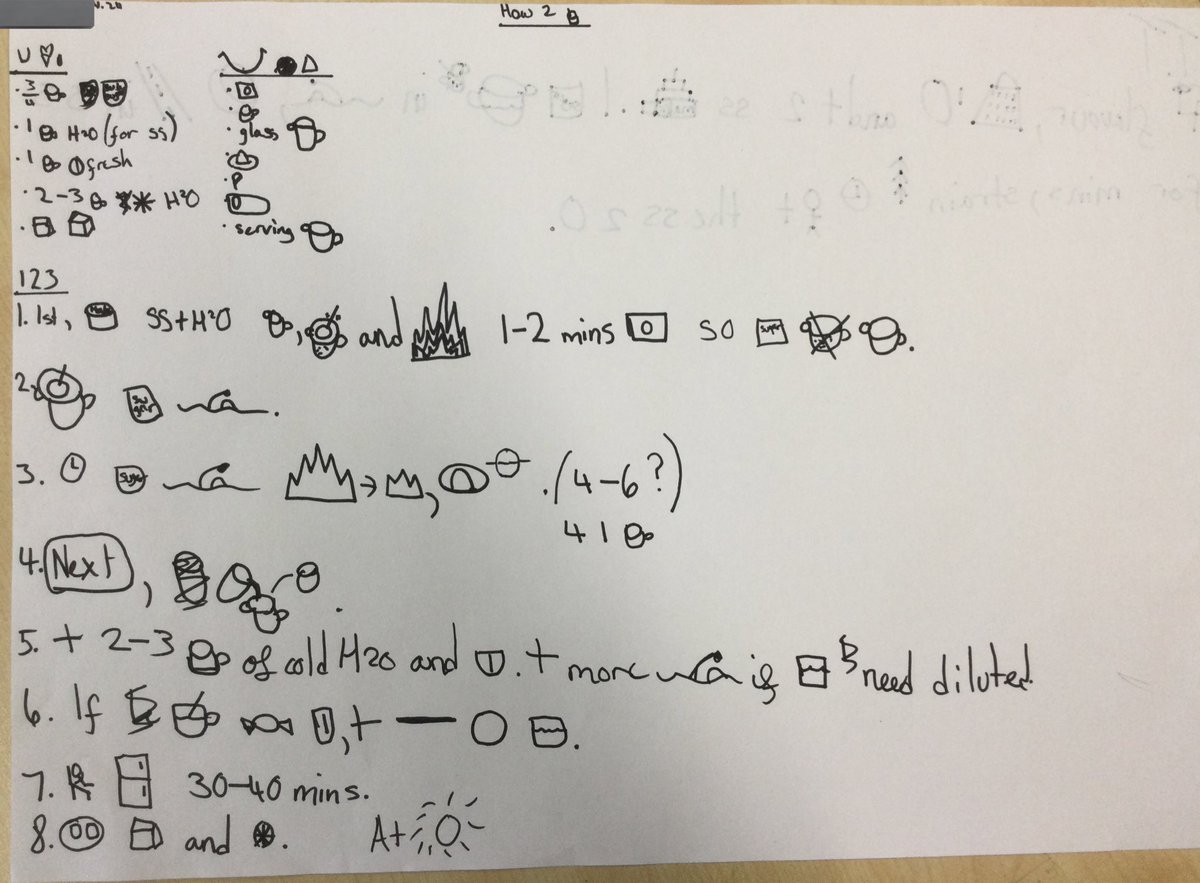 How 2
U
3/4
1 H2O (for ss)
1 fresh
2-3 H2O
glass
serving
123
1. 1st, SS+H2O , and 1-2 mins so sugar .
2. sugar .
3. sugar → , . (4-6?)
4 1
4. Next, .
5. + 2-3 of cold H2O and . + more if need diluted.
6. If , + — .
7. 30-40 mins.
8. and . A+